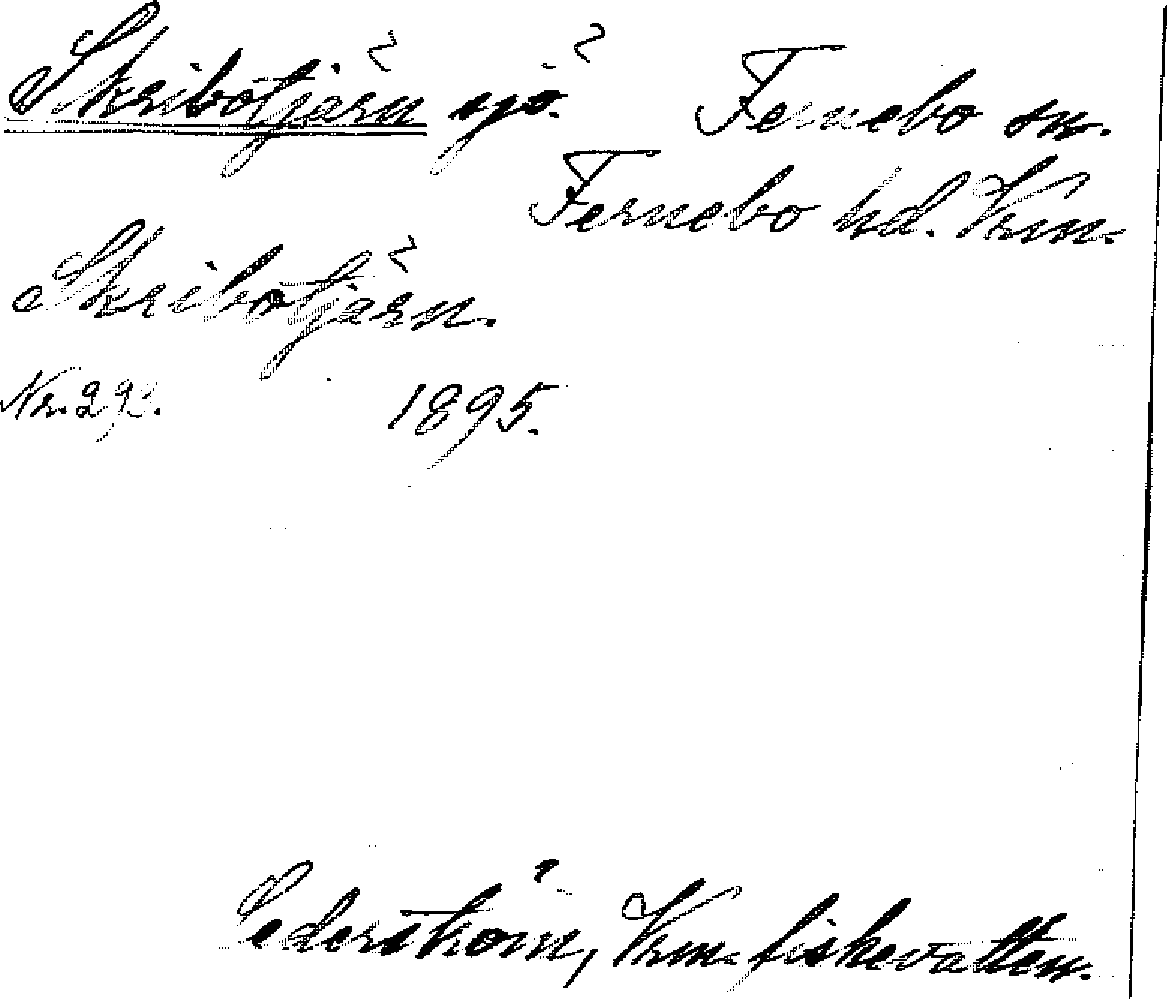 Skribotjärn sjö. Fernebo sn.
Fernebo hd. Vrm.
Skribotjärn.
Nr. 293. 1895.
Cederström, Vrm. fiskevatten.